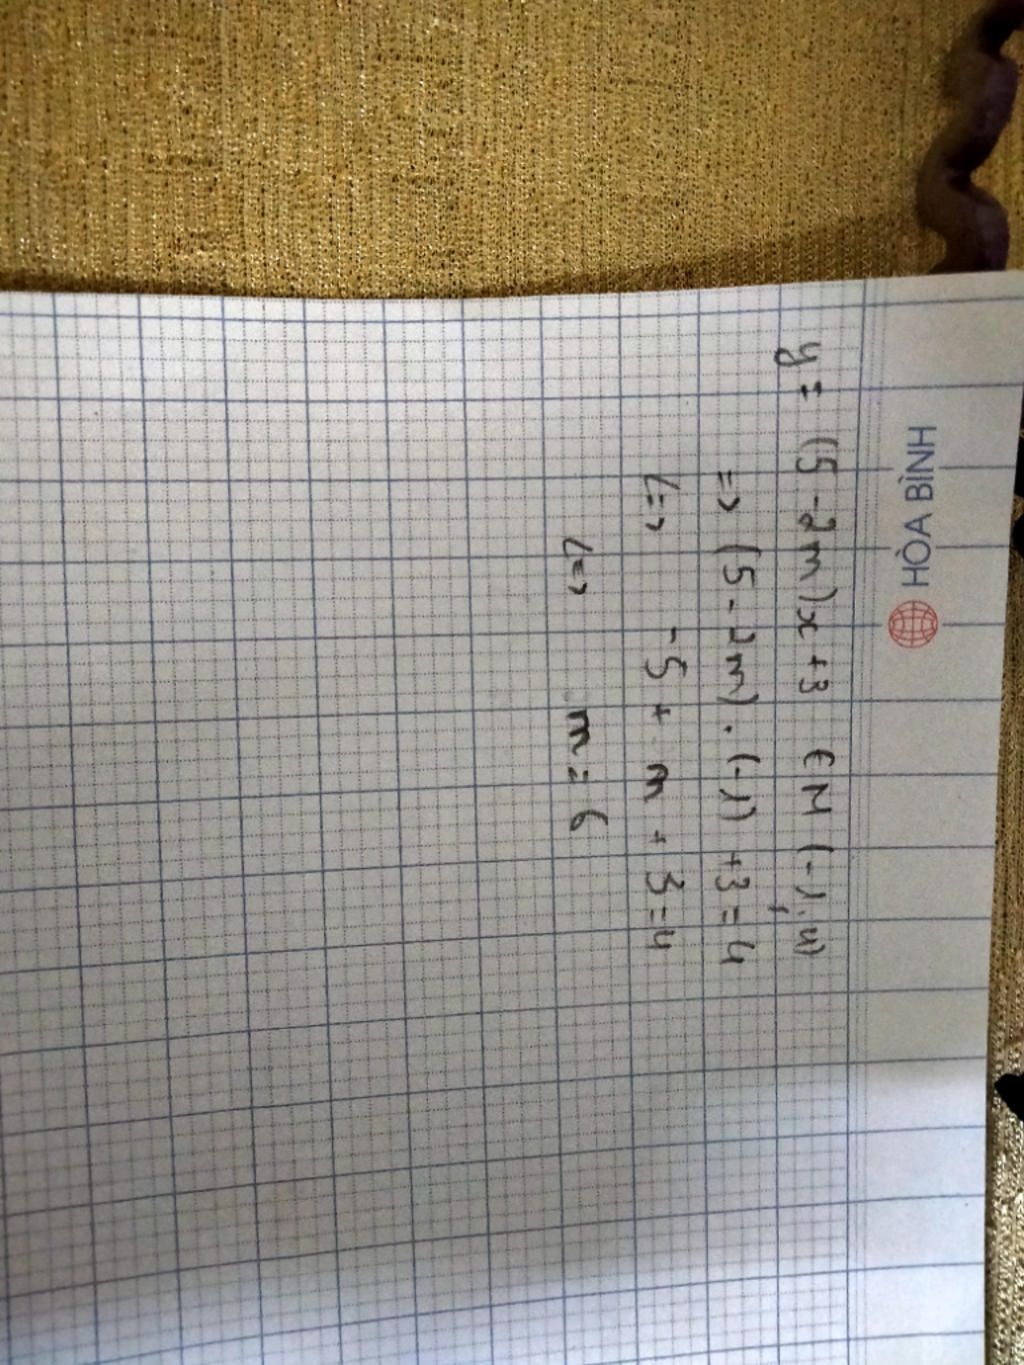 HÒA BÌNH
y = (5 - 2m)x + 3 ∈ M (-1; 4)
=> (5 - 2m) . (-1) + 3 = 4
<=> -5 + m + 3 = 4
<=> m = 6